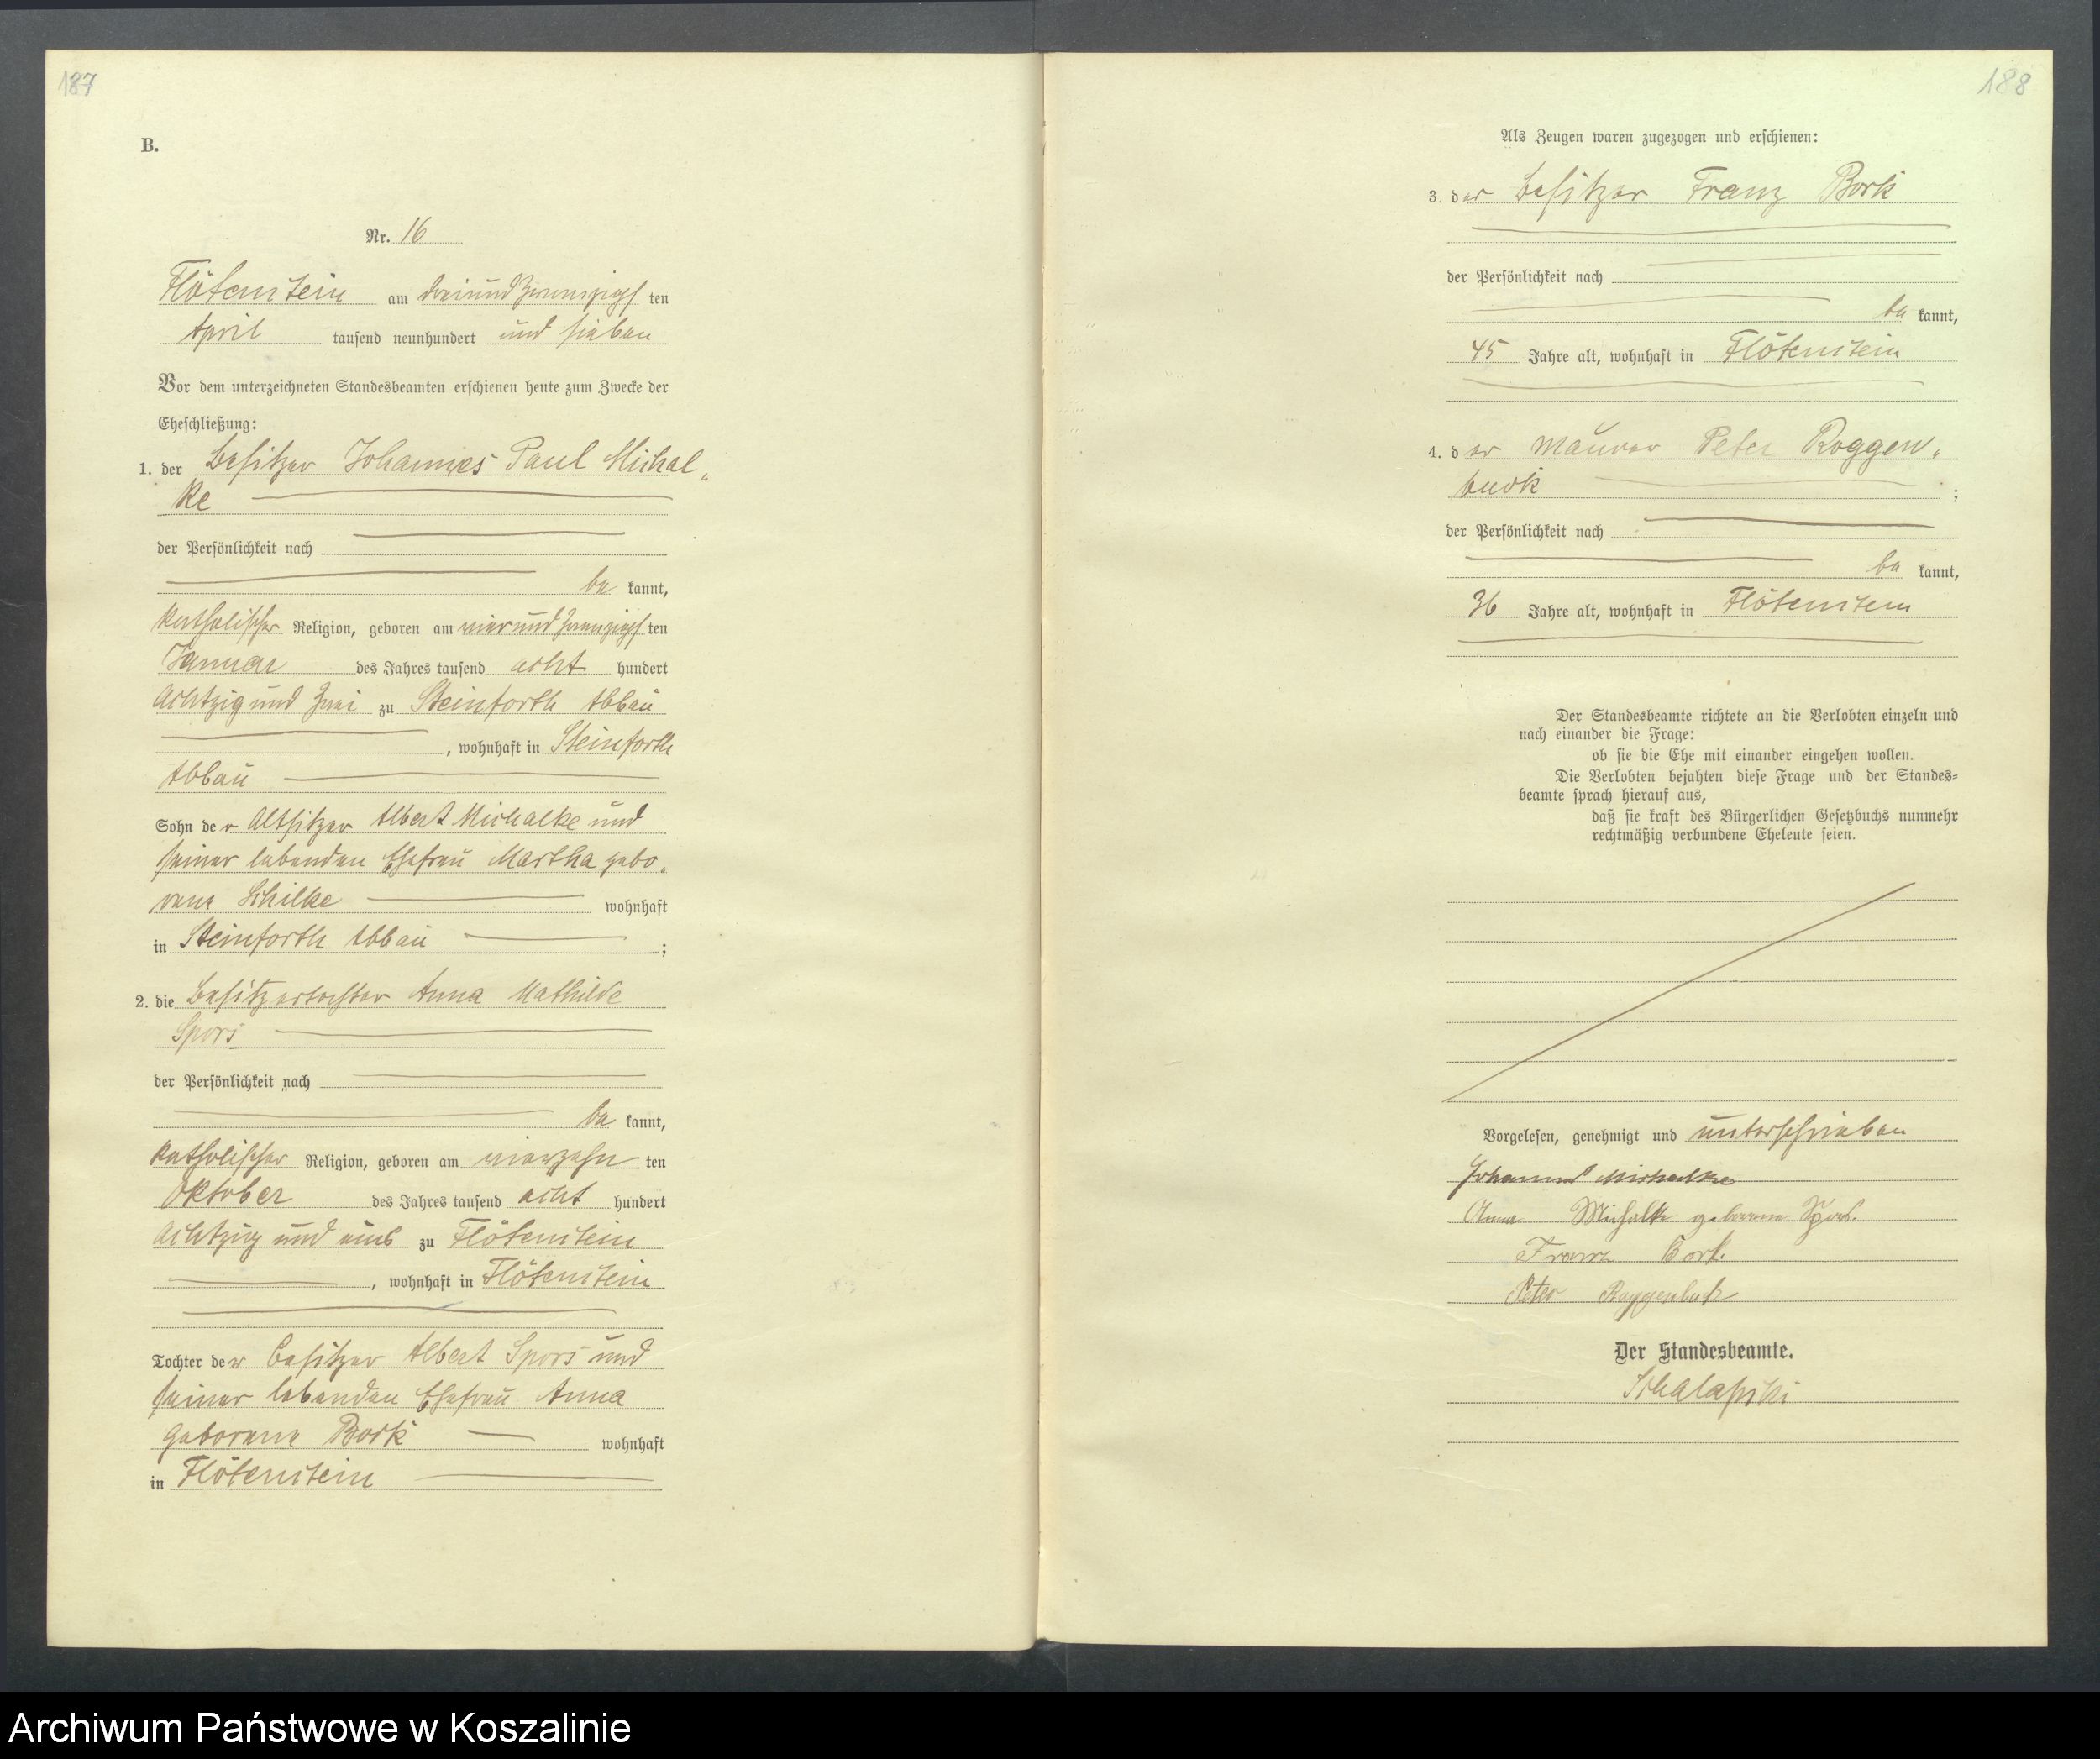 187
B.
Nr. 16
Flötenstein am dreiundzwanzigsten
April tausend neunhundert und sieben
Vor dem unterzeichneten Standesbeamten erschienen heute zum Zwecke der
Eheschließung:
1. der Besitzer Johannes Paul Michal-
ke
der Persönlichkeit nach
bekannt,
katholischer Religion, geboren am vierundzwanzigsten
Januar des Jahres tausend acht hundert
achtzig und zwei zu Steinforth Abbau
, wohnhaft in Steinforth
Abbau
Sohn der Altsitzer Albert Michalke und
seiner lebenden Ehefrau Martha gebo-
rene Schilke wohnhaft
in Steinforth Abbau ;
2. die Besitzertochter Anna Mathilde
Spors
der Persönlichkeit nach
bekannt,
katholischer Religion, geboren am vierzehnten
Oktober des Jahres tausend acht hundert
achtzig und eins zu Flötenstein
, wohnhaft in Flötenstein
Tochter der Besitzer Albert Spors und
seiner lebenden Ehefrau Anna
geborene Bork wohnhaft
in Flötenstein
188
Als Zeugen waren zugezogen und erschienen:
3. der Besitzer Franz Bork
der Persönlichkeit nach
bekannt,
45 Jahre alt, wohnhaft in Flötenstein
4. der Maurer Peter Roggen-
buck ;
der Persönlichkeit nach
bekannt,
36 Jahre alt, wohnhaft in Flötenstein
Der Standesbeamte richtete an die Verlobten einzeln und
nach einander die Frage:
ob sie die Ehe mit einander eingehen wollen.
Die Verlobten bejahten diese Frage und der Standes-
beamte sprach hierauf aus,
daß sie kraft des Bürgerlichen Gesetzbuchs nunmehr
rechtmäßig verbundene Eheleute seien.
Vorgelesen, genehmigt und unterschrieben
Johannes Michalke
Anna Michalke geborene Spors.
Franz Bork.
Peter Roggenbuck
Der Standesbeamte.
Archiwum Państwowe w Koszalinie